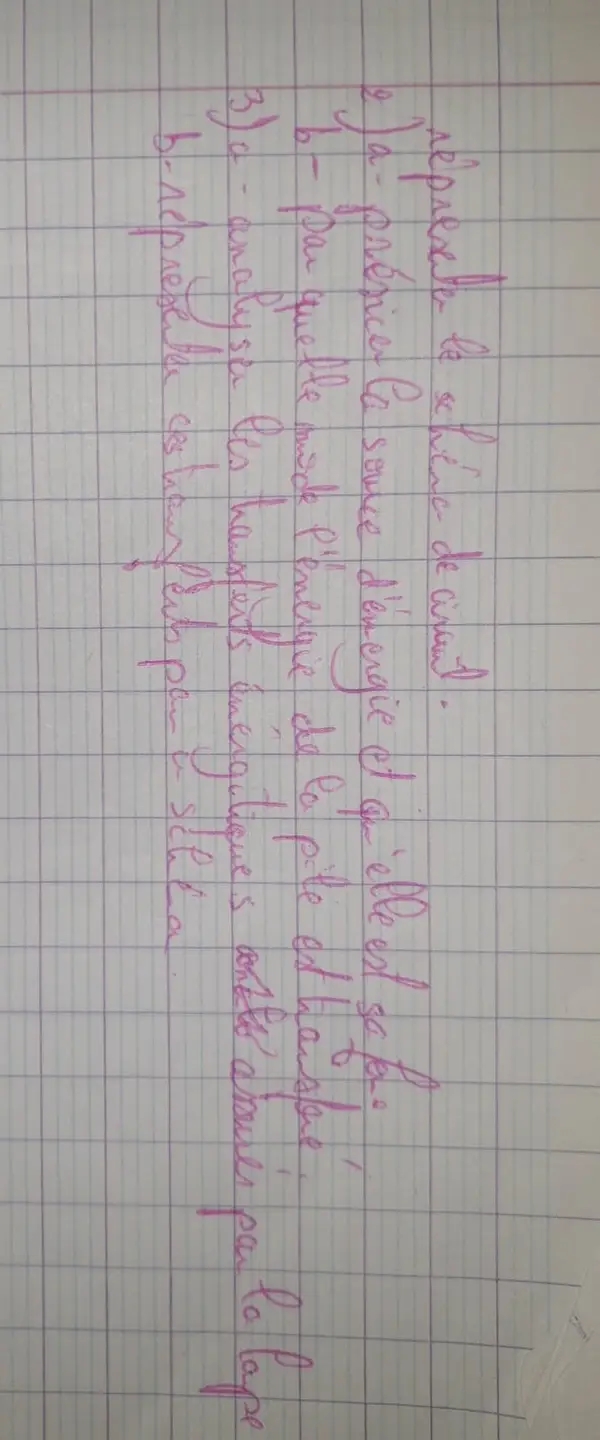 répresenter le schéma de circuit.
2) a - préciser la source d'énergie et qu'elle est sa fo.
b - par quelle mode l'énergie de la pile est transféré.
3) a - analyser les transferts énergétiques assurés par la lape
b - répresenter ces transferts par u schéa.